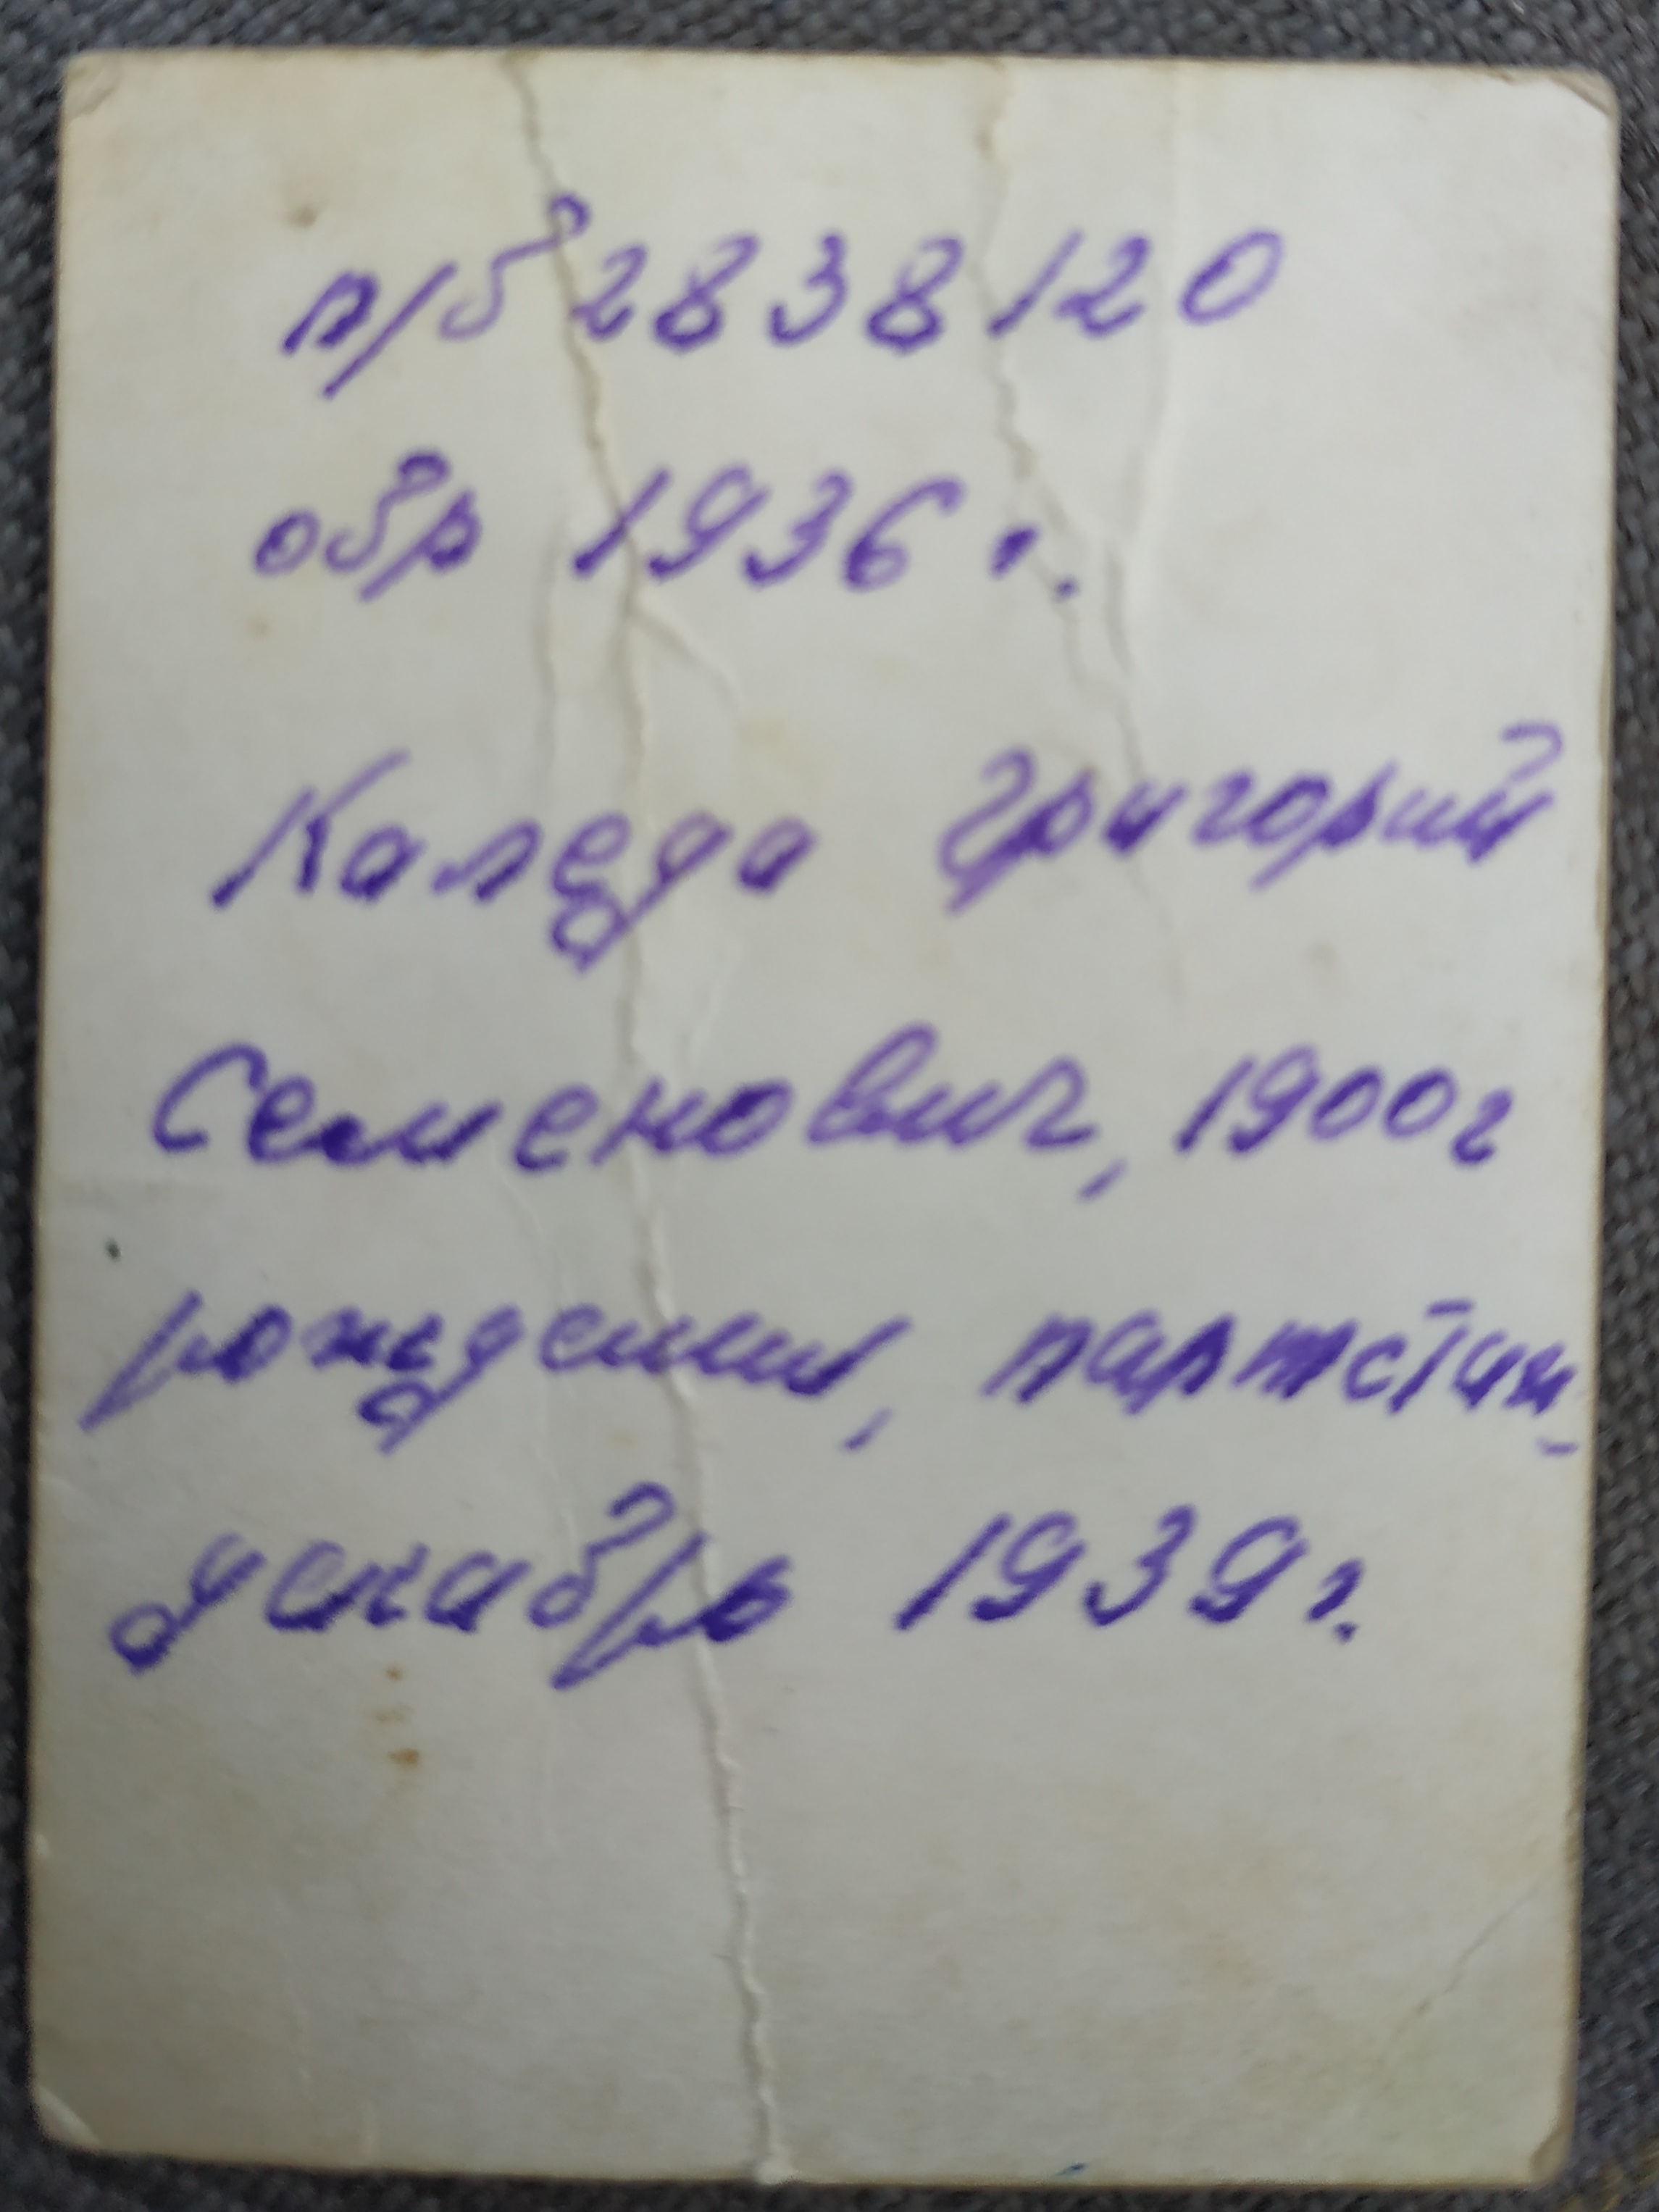 п/б 2838120
обр 1936 г.
Каледа Григорий
Семенович, 1900г
рождения, партстаж
декабрь 1939г.